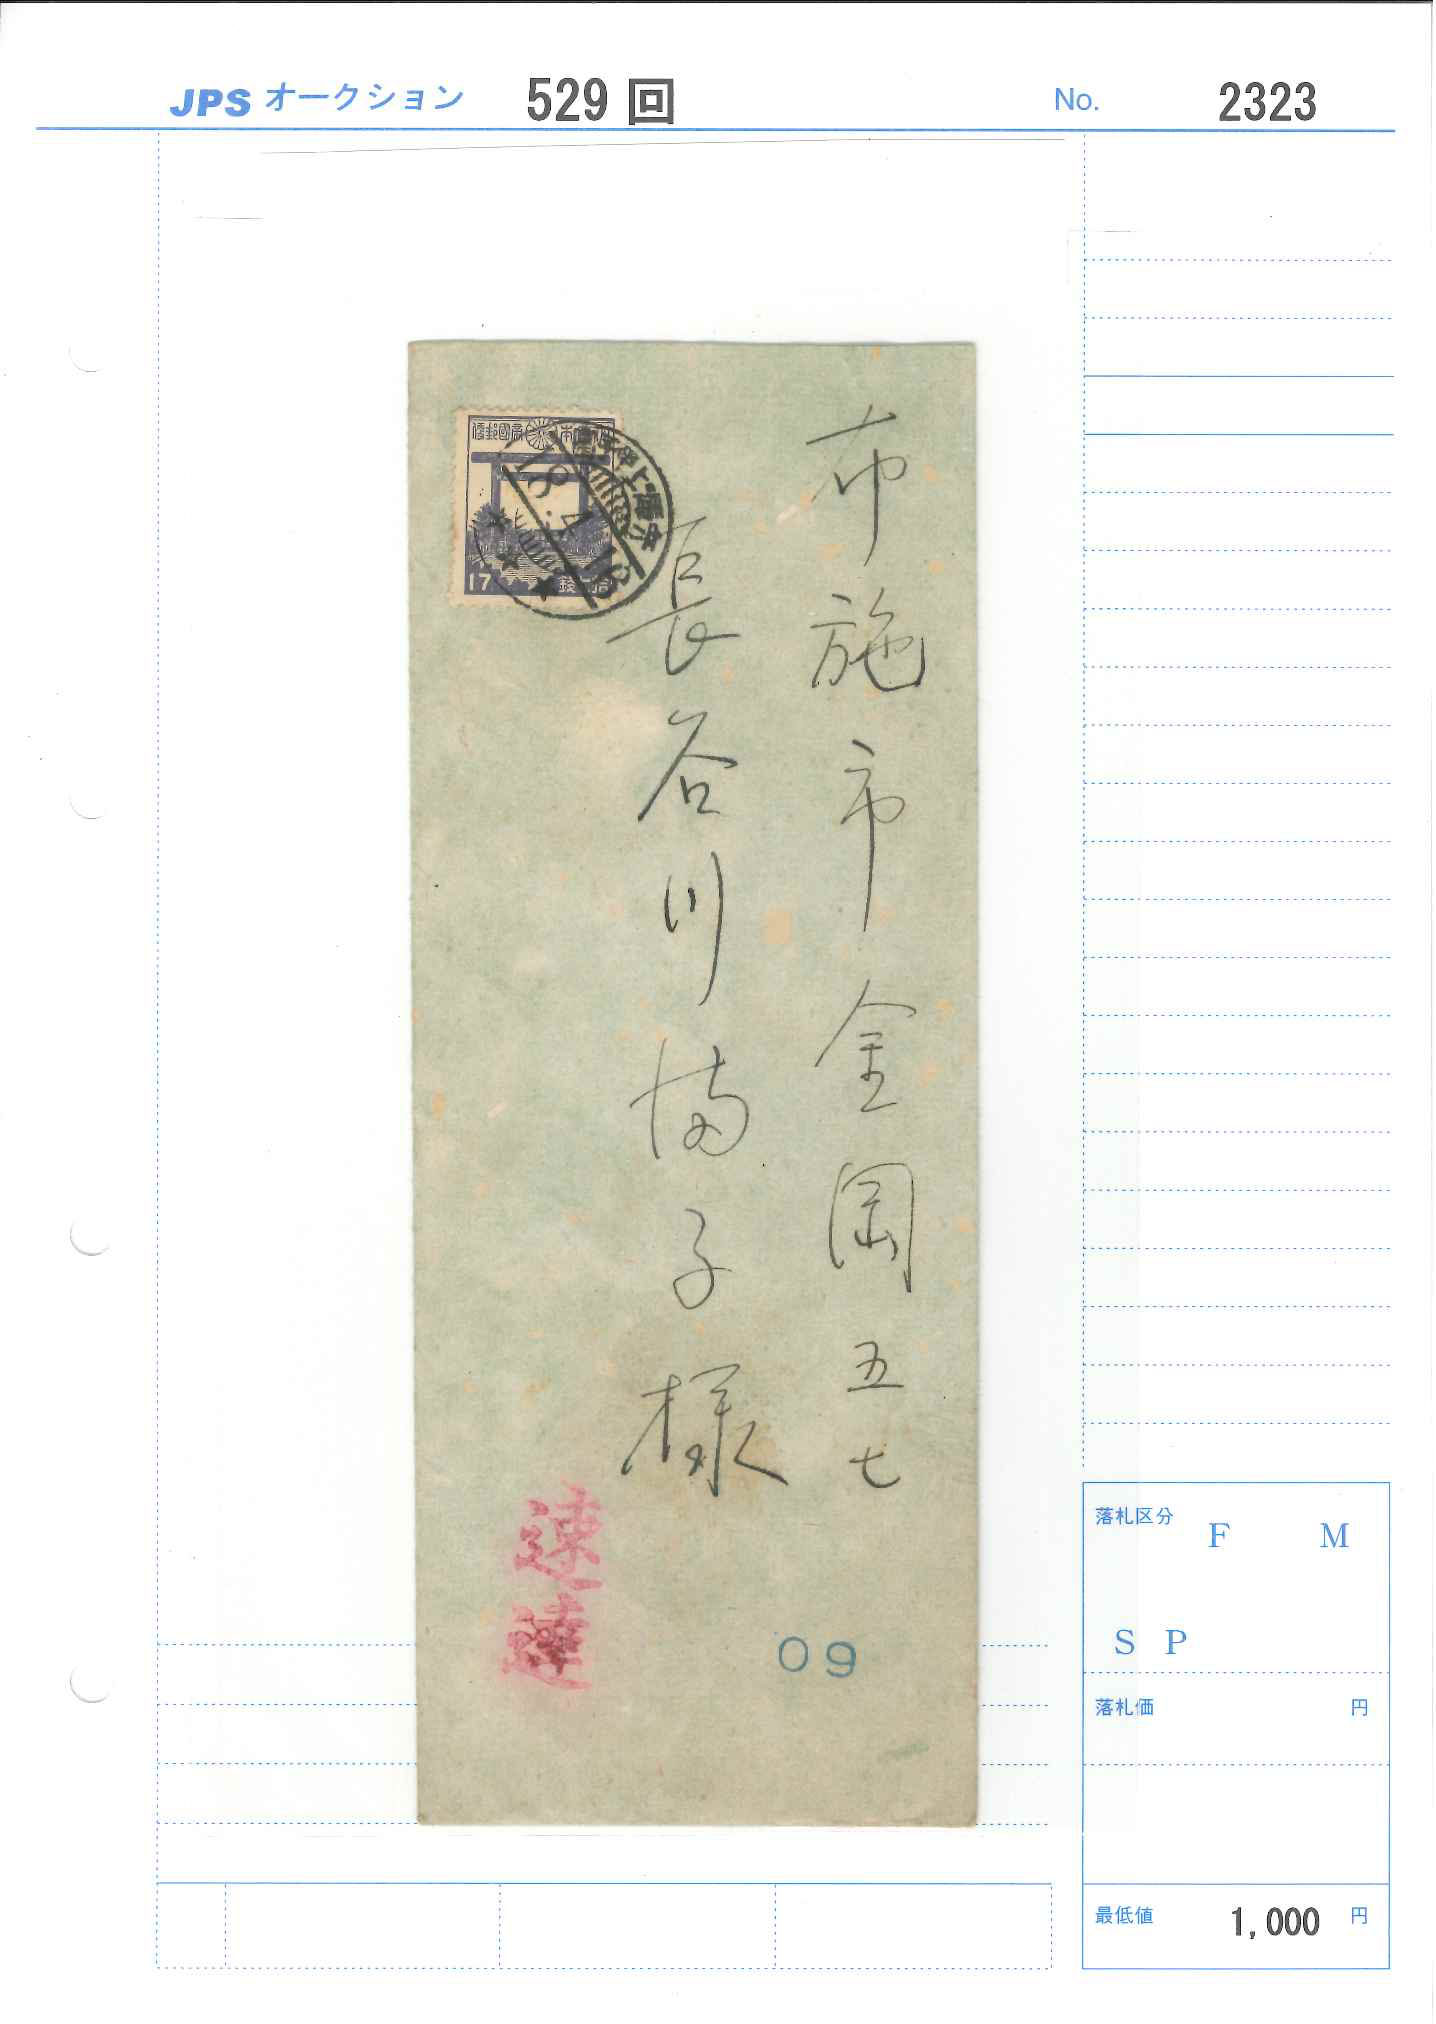 JPS オークション 529 回 No. 2323
布施市金岡五七
長谷川満子様
17
速達
09
落札区分 F M
S P
落札価 円
最低値 1,000 円